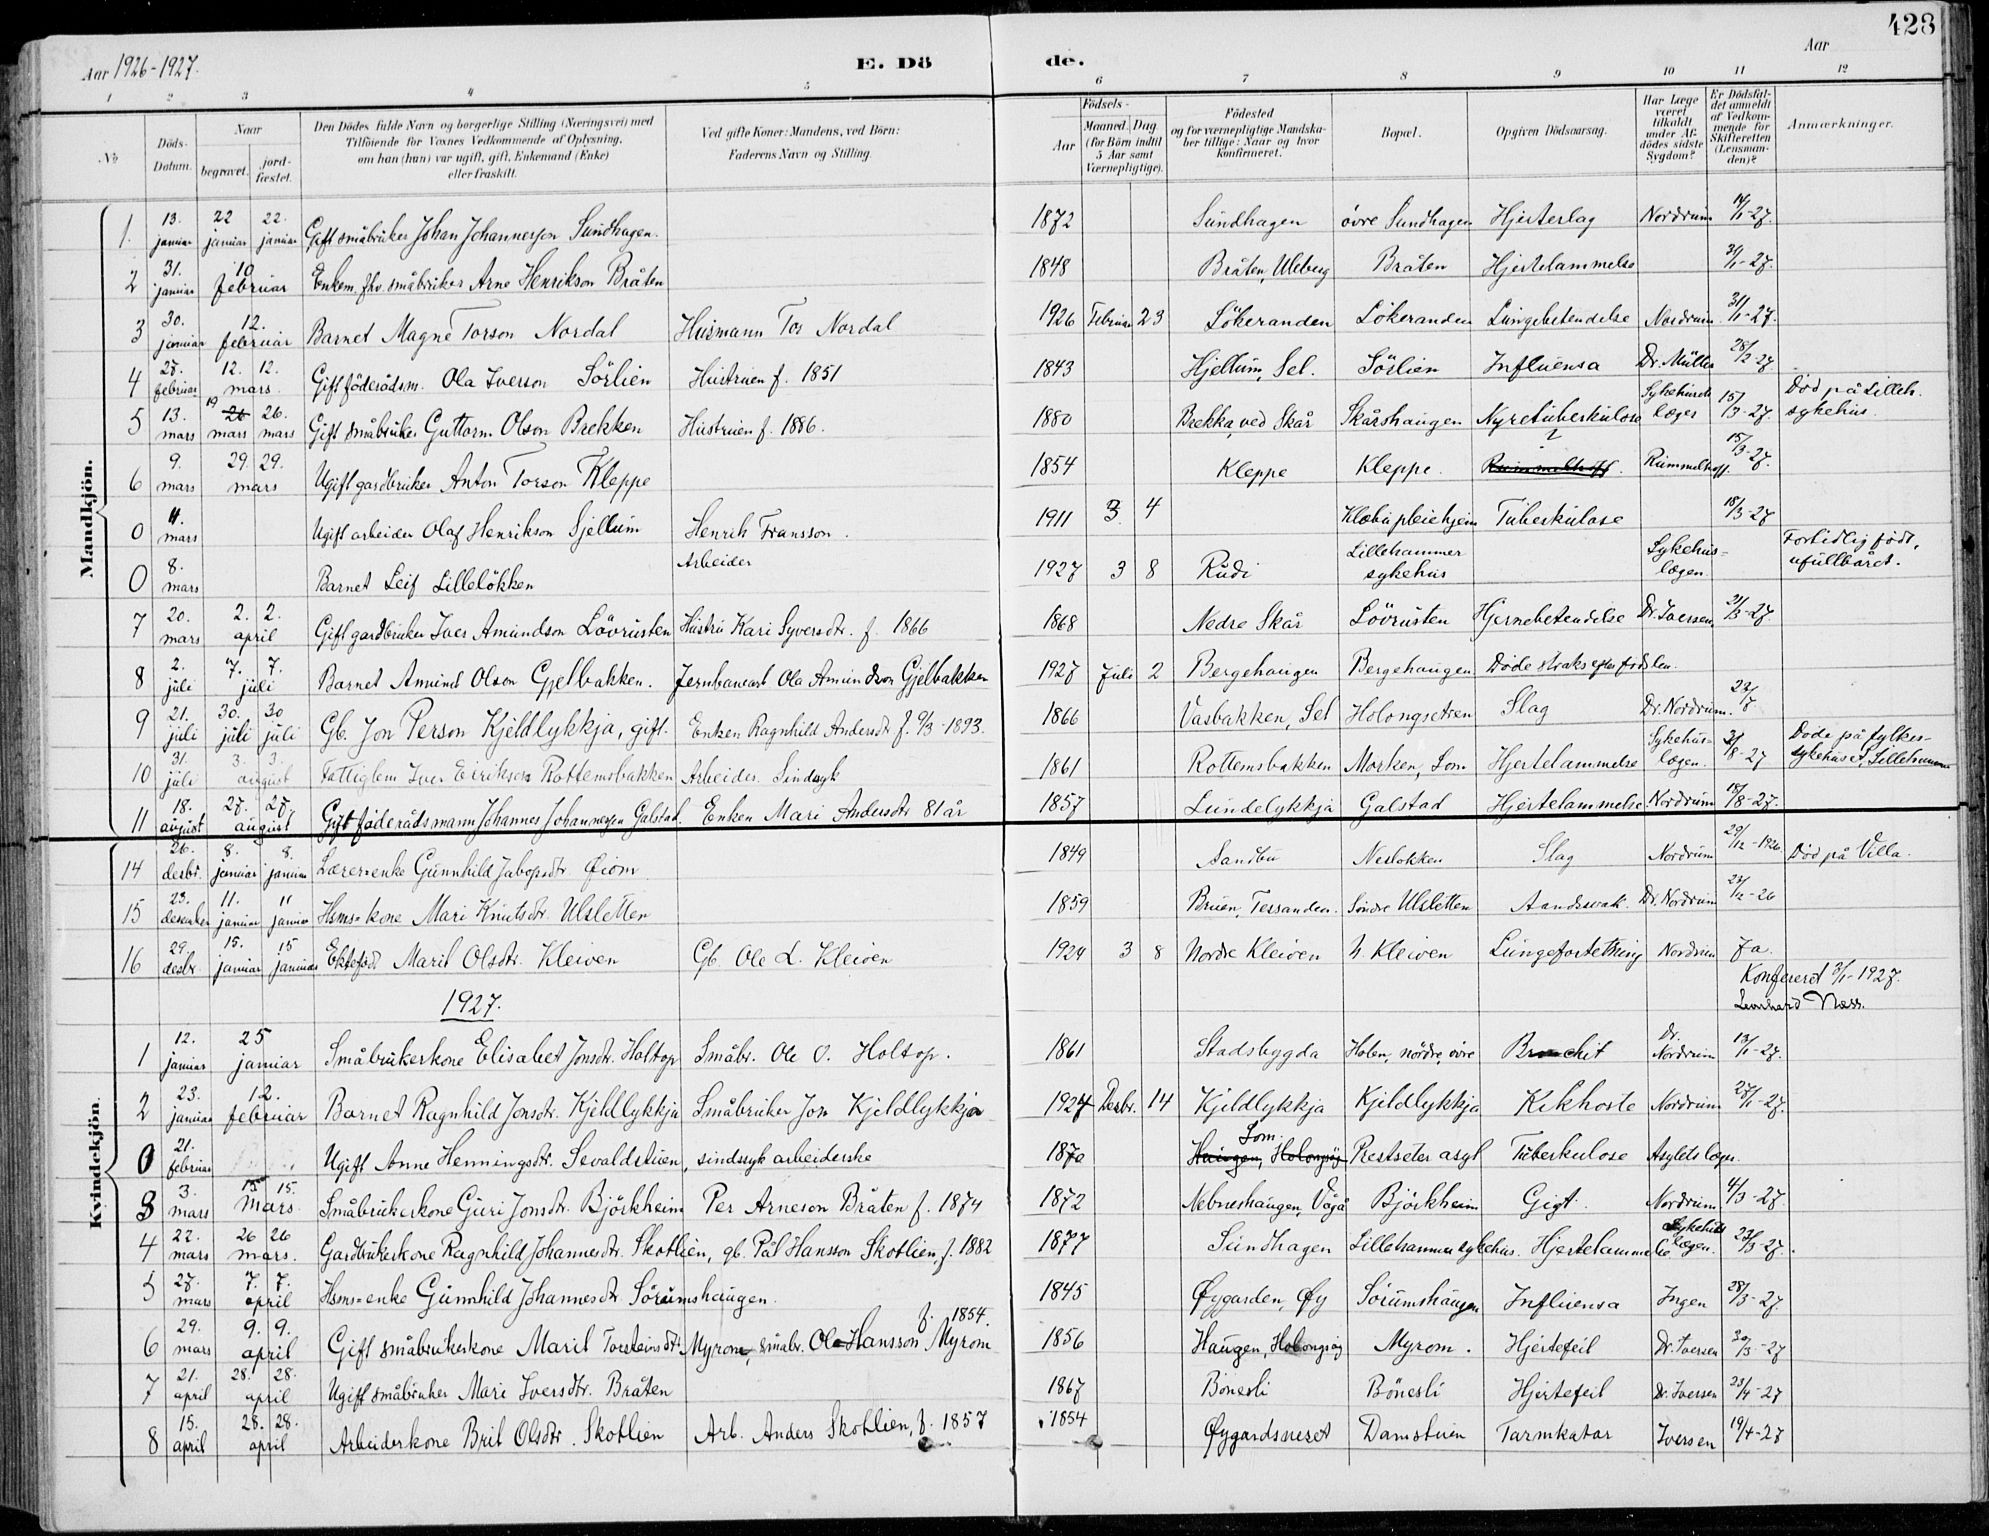 428
Aar 1926-1927. E. Dö de. Aar
1 2 3 4 5 6 7 8 9 10 11 12
No
Döds-Datum.
Naar begravet. jord-fæstet.
Den Dödes fulde Navn og borgerlige Stilling (Næringsvei) med Tilföiende for Voxnes Vedkommende af Oplysning, om han (hun) var ugift, gift, Enkemand (Enke) eller fraskilt.
Ved gifte Koner: Mandens, ved Börn: Faderens Navn og Stilling.
Födsels-
Aar Maaned. Dag (for Börn indtil 5 Aar samt Værnepligtige).
Födested og for værnepligtige Mandskaber tillige: Naar og hvor konfirmeret.
Bopæl.
Opgiven Dödsaarsag.
Har Læge været tilkaldt under Afdödes sidste Sygdom?
Er Dödsfaldet anmeldt af Vedkommende for Skifteretten (Lensmanden)?
Anmærkninger.
Mandkjön.
1. 13. januar 22 januar 22. januar Gift småbruker Johan Johannesson Sundhagen. 1872 Sundhagen övre Sundhagen Hjerteslag Nordrum 14/1-27.
2 31. januar 10 februar Enkem. fhv. småbruker Arne Henrikson Bråten 1848 Bråten, Uleberg Bråten Hjertelammelse 31/1-27.
3 30. januar 12. februar Barnet Magne Torson Nordal Husmann Tor Nordal 1926 Februar 23 Lökeranden Lökeranden Lungebetendelse Nordrum 31/1-27.
4 27. februar 12. 12. mars Gift föderådsm. Ola Iverson Sörlien Hustruen f. 1851 1843 Hjellum, Sel. Sörlien Influensa Dr. Müller 28/2-27
5 13. mars 19 26 mars 26. mars Gift småbruker Guttorm Olson Brekken Hustruen f. 1886. 1880 Brekka, ved Skår Skårshaugen Nyretuberkulose Sykehusets læger 15/3-27. Död på Lilleh. sykehus.
6 9. mars 29. 29. mars Ugift gardbruker Anton Torson Kleppe 1854 Kleppe Kleppe. ? Rummelhoff. Rummelhoff 15/3-27.
0 11. mars Ugift arbeider Olaf Henrikson Sjellum Henrik Fransson. Arbeider 1911 3 4 Klæbu pleiehjem Tuberkulose 18/3-27
0 8. mars Barnet Leif Lillelökken 1927 3 8 Rudi Lillehammer sykehus Sykehus-lægen. Fortidlig födt, ufullbåret.
7 20. mars 2. 2. april Gift gardbruker Iver Amundson Lövrusten Hustru Kari Syversdtr. f. 1866 1868 Nedre Skår Lövrusten Hjernebetendelse Dr. Iversen. 21/3-27.
8 2. juli 7. 7. juli Barnet Amund Olson Gjelbakken. Jernbanearb Ola Amundson Gjelbakken 1927 Juli 2 Bergehaugen Bergehaugen Döde straks efter födslen.
9 21. juli 30. juli 30 juli Gb. Jon Person Kjeldlykkja, gift. Enken Ragnhild Andersdtr f. 9/3-1893. 1866 Vasbakken, Sel Holongsetren Slag Dr. Nordrum. 22/7
10 31. juli 3. 3. august Fattiglem Iver Eirikson Rottemsbakken Arbeider. Sindsyk 1861 Rottemsbakken Morken, Lom Hjertelammelse Sykehus-lægen. /8-27 Döde på fylkes-sykehuset, Lillehammer
11 18. august 27. 27. august Gift föderådsmann Johannes Johannessen Galstad. Enken Mari Andersdtr 81 år 1857 Lundelykkja Galstad Hjertelammelse Nordrum 18/8-27.
Kvindekjön.
14 26. desbr. 8. januar 8. januar Lærerenke Gunnhild Jakopsdtr. Øiom 1849 Sandbu Neslökken Slag Nordrum 29/12-1926. Död på Villa.
15 23. desember 11. januar 11 januar Hsms=kone Mari Knutsdtr. Ulsletten 1859 Bruen, Tessanden. Söndre Ulsletten Aandssvak. Dr. Nordrum 27/12-26
16 29. desbr. 15. januar 15 januar Ektefødt Marit Olsdtr. Kleiven Gb. Ole L. Kleiven 1924 3 8 Nordre Kleiven N. Kleiven Lungefortetthing Nordrum Ja.
Konfereret 3/1-1927.
1927. Leonhard Næss.
1 12. januar 25 januar Småbrukerkone Elisabet Jonsdtr. Holtop Småbr. Ole O. Holtop. 1861 Stadsbygda Holen, nördre, övre Bronchit Dr. Nordrum 13/1-27.
2 23. januar 12. februar Barnet Ragnhild Jonsdtr. Kjeldlykkja Småbruker Jon Kjeldlykkja 1924 Desbr. 14 Kjeldlykkja Kjeldlykkja Kikhoste Nordrum 27/1-27.
0 21. februar Ugift Anne Henningsdtr. Sevaldstuen, sindssyk arbeiderske 1870 Lom. Haugen, Holongsöy Prestseter asyl Tuberkulose Asylets læger.
3 3. mars 15 15. mars. Småbrukerkone Guri Jonsdtr. Björkheim Per Arneson Bråten f. 1874 1872 Nebneshaugen, Vågå Björkheim Gigt. Nordrum 4/3-27.
4 22. mars 26 26 mars. Gardbrukerkone Ragnhild Johannesdtr. Skotlien, gb. Pål Hansson Skotlien, f. 1882 1877 Sundhagen Lillehammer sykehus. Hjertelammelse Sykehuslægen. 23/3-27.
5 27. mars 7. 7. april Hsms=enke Gunnhild Johannesdtr Sörumshaugen. 1845 Øygarden, Øy Sörumshaugen Influensa Ingen 28/3-27
6 29. mars 9. 9. april Gift småbrukerkone Marit Torsteinsdtr. Myrom, småbr. Ola Hansson Myrom f. 1854. 1856 Haugen, Holongsöy Myrom. Hjertefeil Dr. Iversen 30/3-27
7 21. april 28. 28. april Ugift småbruker Mari Iversdtr. Bråten 1867 Bönesli Bönesli Hjertefeil Dr. Iversen 23/4-27
8 15. april 28. 28. april Arbeiderkone Brit Olsdtr. Skotlien Arb. Anders Skotlien, f. 1857 1854 Øygardsneset Damstuen Tarmkatar Iversen 19/4-27